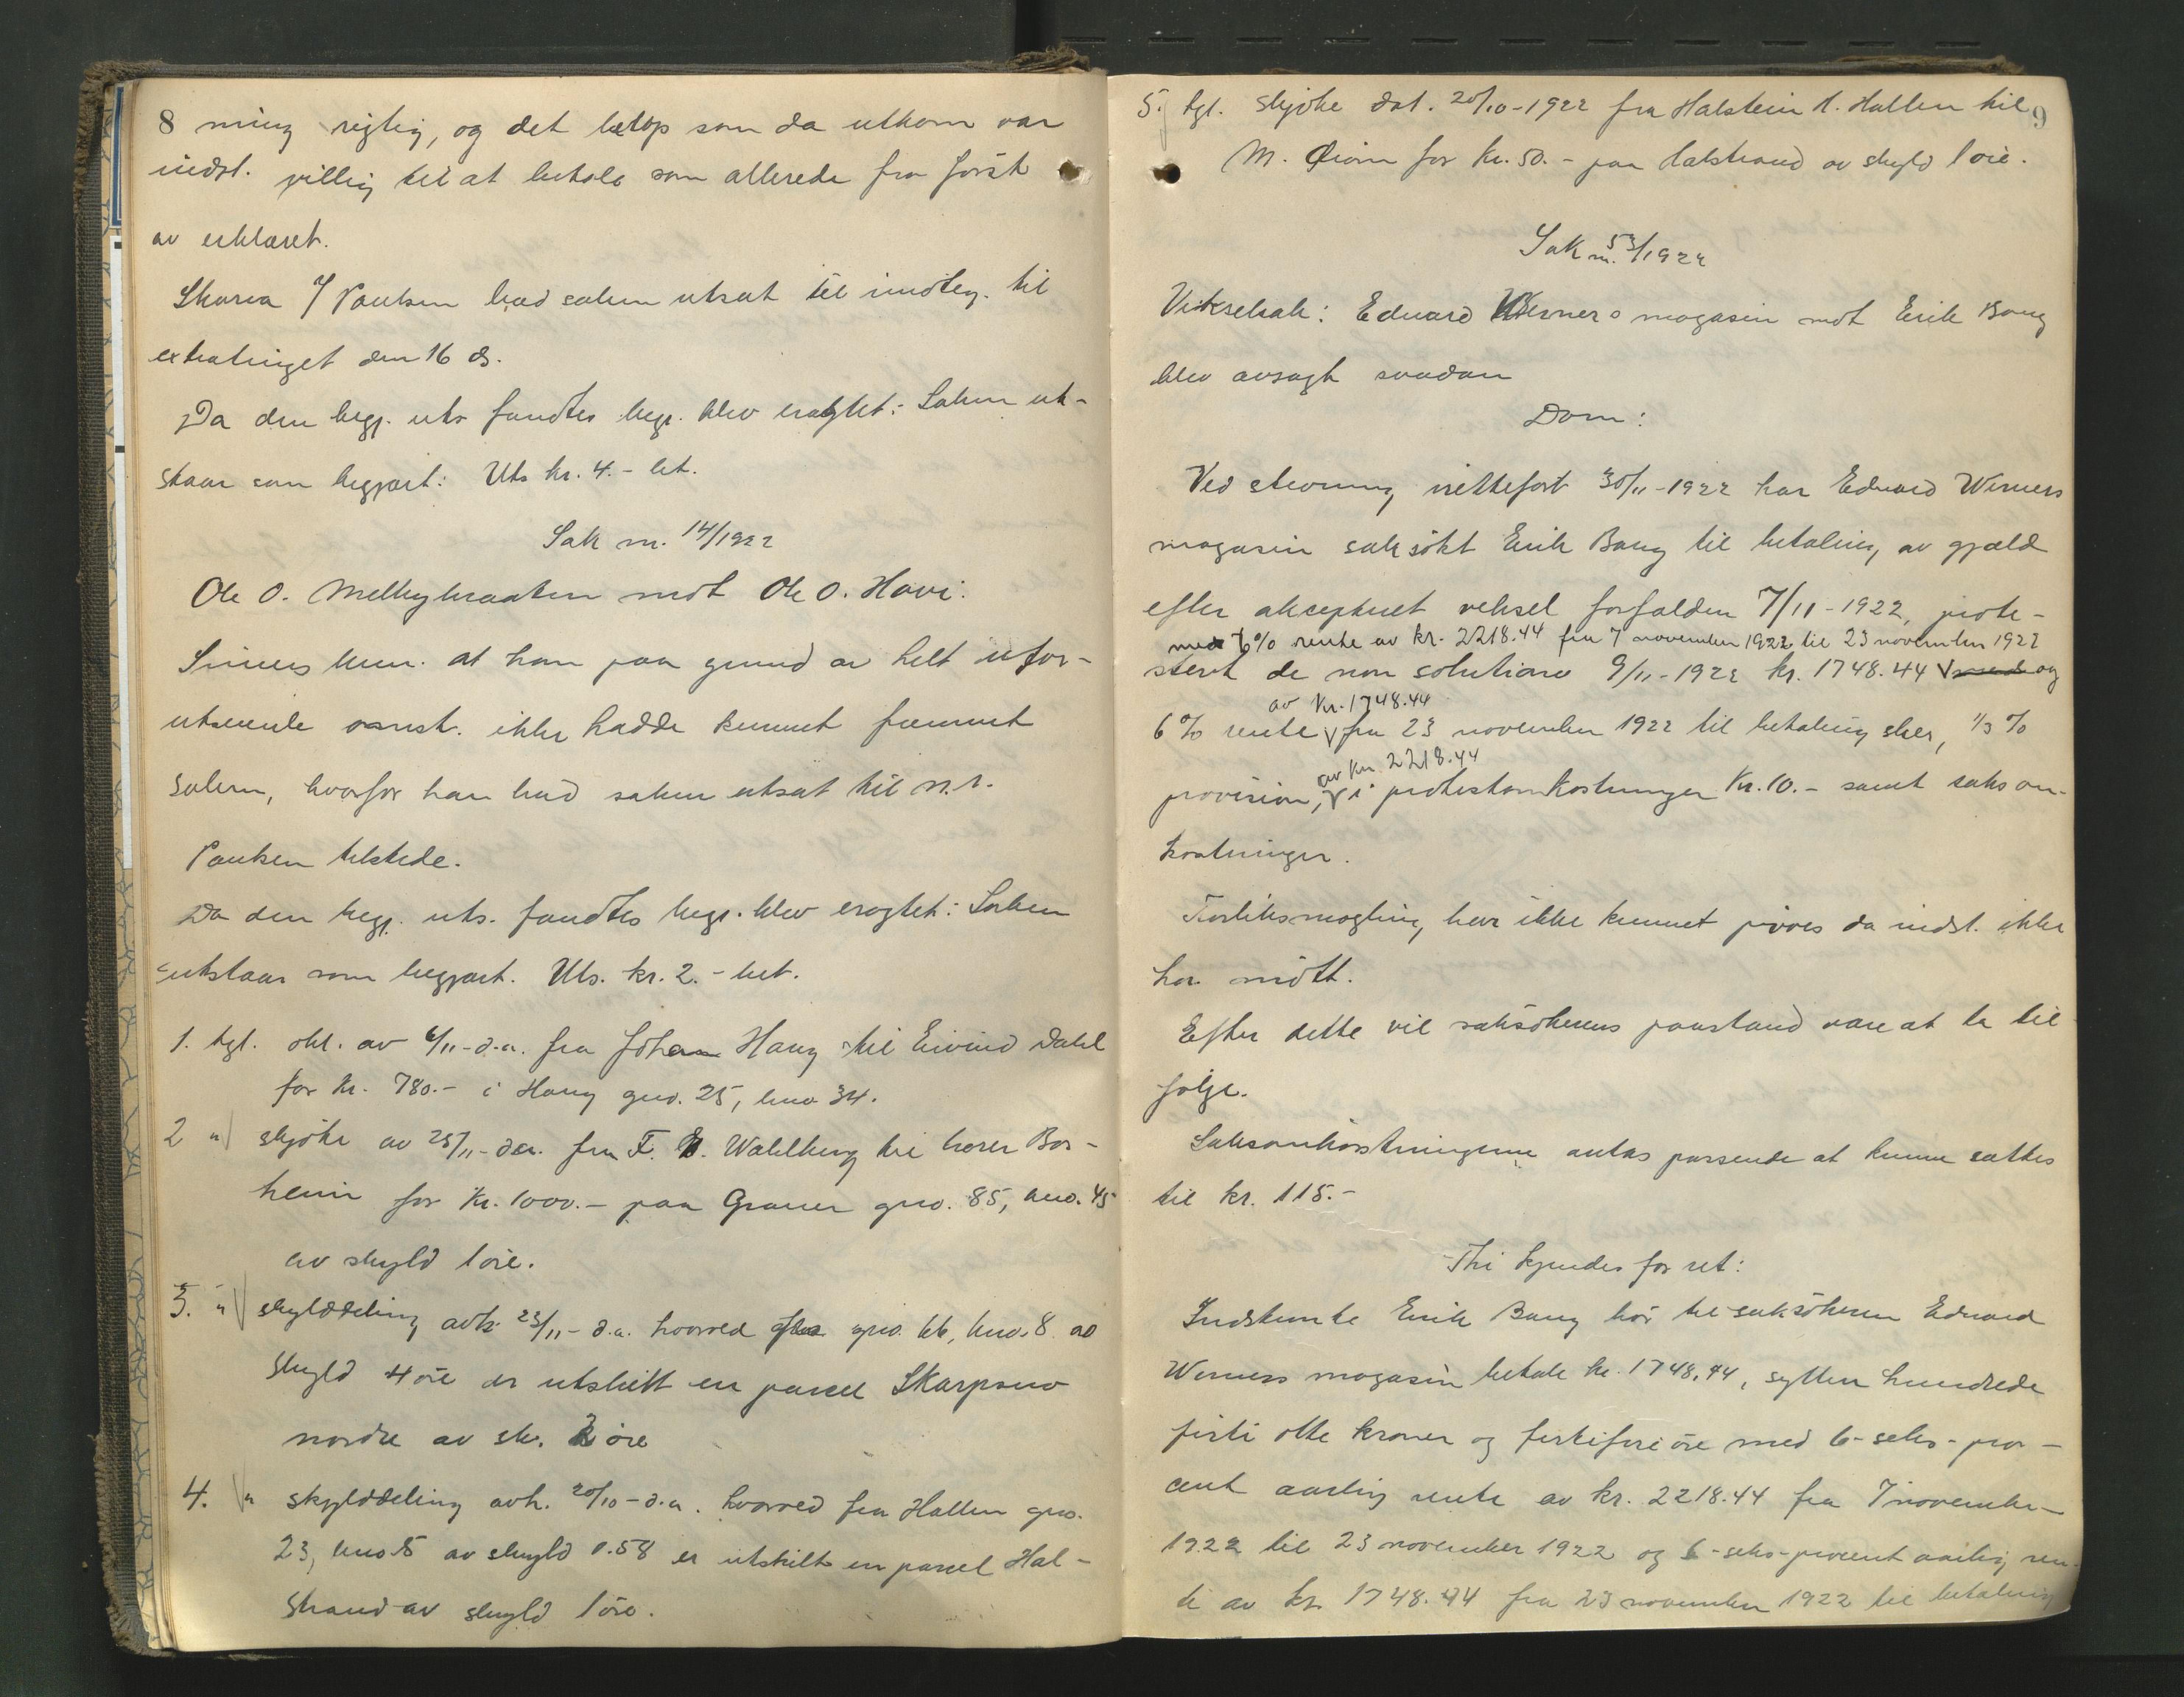 8 ning rigtig, og det beløp som da utkom var
indst. villig til at betale som allerede fra først
av erklæret.
Skarra f/ Paulsen bad saken utsat til indlæg. til
extratinget den 16 ds.
Da den begj. uts fandtes begr. blev eragtet: Saken ut-
staar som begjært: Uts kr. 4.- bet.
Sak nr. 14/1922
Ole O. Melbybraaten mot Ole O. Havi:
at han paa grund av helt ufor-
utseede ikke hadde kunnet fremmet
saken, hvorfor han bad saken utsat til n.t.
Paulsen tilstede.
Da den begj. uts. fandtes begr. blev eragtet: Saken
utstaar som begjært. Uts. kr. 2.- bet.
1. tgl. obl. av 6/11-d.a. fra Johan Haug til Eivind Dahl
for kr. 780.- i Haug gno. 25, bno 34.
2 " skjøte av 25/11-d.a. fra F. B. Wahlberg til Bor-
heim for kr. 1000.- paa Graner gno. 85, bno. 45
av skyld 1 øre.
3. " skylddeling avh. 23/11-d.a. hvorved fra gno. 66, bno. 8 av
skyld 4 øre er utskilt en parcel Skarpsno
nordre av sk. 2 øre
4. " skylddeling avh. 20/10-d.a. hvorved fra Hallen gno.
23, bno 5 av skyld 0.58 er utskilt en parcel Hal-
strand av skyld 1 øre.
5. tgl. skjøte dat. 20/10-1922 fra Halstein H. Hallen til 9
M. for kr. 50.- paa Halstrand av skyld 1 øre.
Sak nr. 53/1922
Vekselsak: Eduard Werners magasin mot Erik Baug
blev avsagt saadan
Dom:
Ved stevning irettefört 30/11-1922 har Eduard Werners
magasin saksökt Erik Baug til betaling av gjæld
efter akceptert veksel forfalden 7/11-1922, prote-
med 6% rente av kr. 2218.44 fra 7 november 1922 til 23 november 1922
stert de non solutione 9/11-1922 kr. 1748.44 V med og
av kr. 1748.44
6% rente V fra 23 november 1922 til betaling sker, 1/3 %
av kr. 2218.44
provision, V i protestomkostninger kr. 10.- samt saksom-
kostninger.
Forliksmægling har ikke kunnet pröves da indst. ikke
har mött.
Efter dette vil saksökerens paastand være at ta til
fölge.
Saksomkostningene antas passende at kunne sættes
til kr. 115.-
Thi kjendes for ret:
Indstevnte Erik Baug bör til saksökeren Eduard
Werners magasin betale kr. 1748.44, sytten hundrede
firti otte kroner og firtifire öre med 6-seks-pro-
cent aarlig rente av kr. 2218.44 fra 7 november
1922 til 23 november 1922 og 6-seks-procent aarlig ren-
te av kr. 1748.44 fra 23 november 1922 til betaling